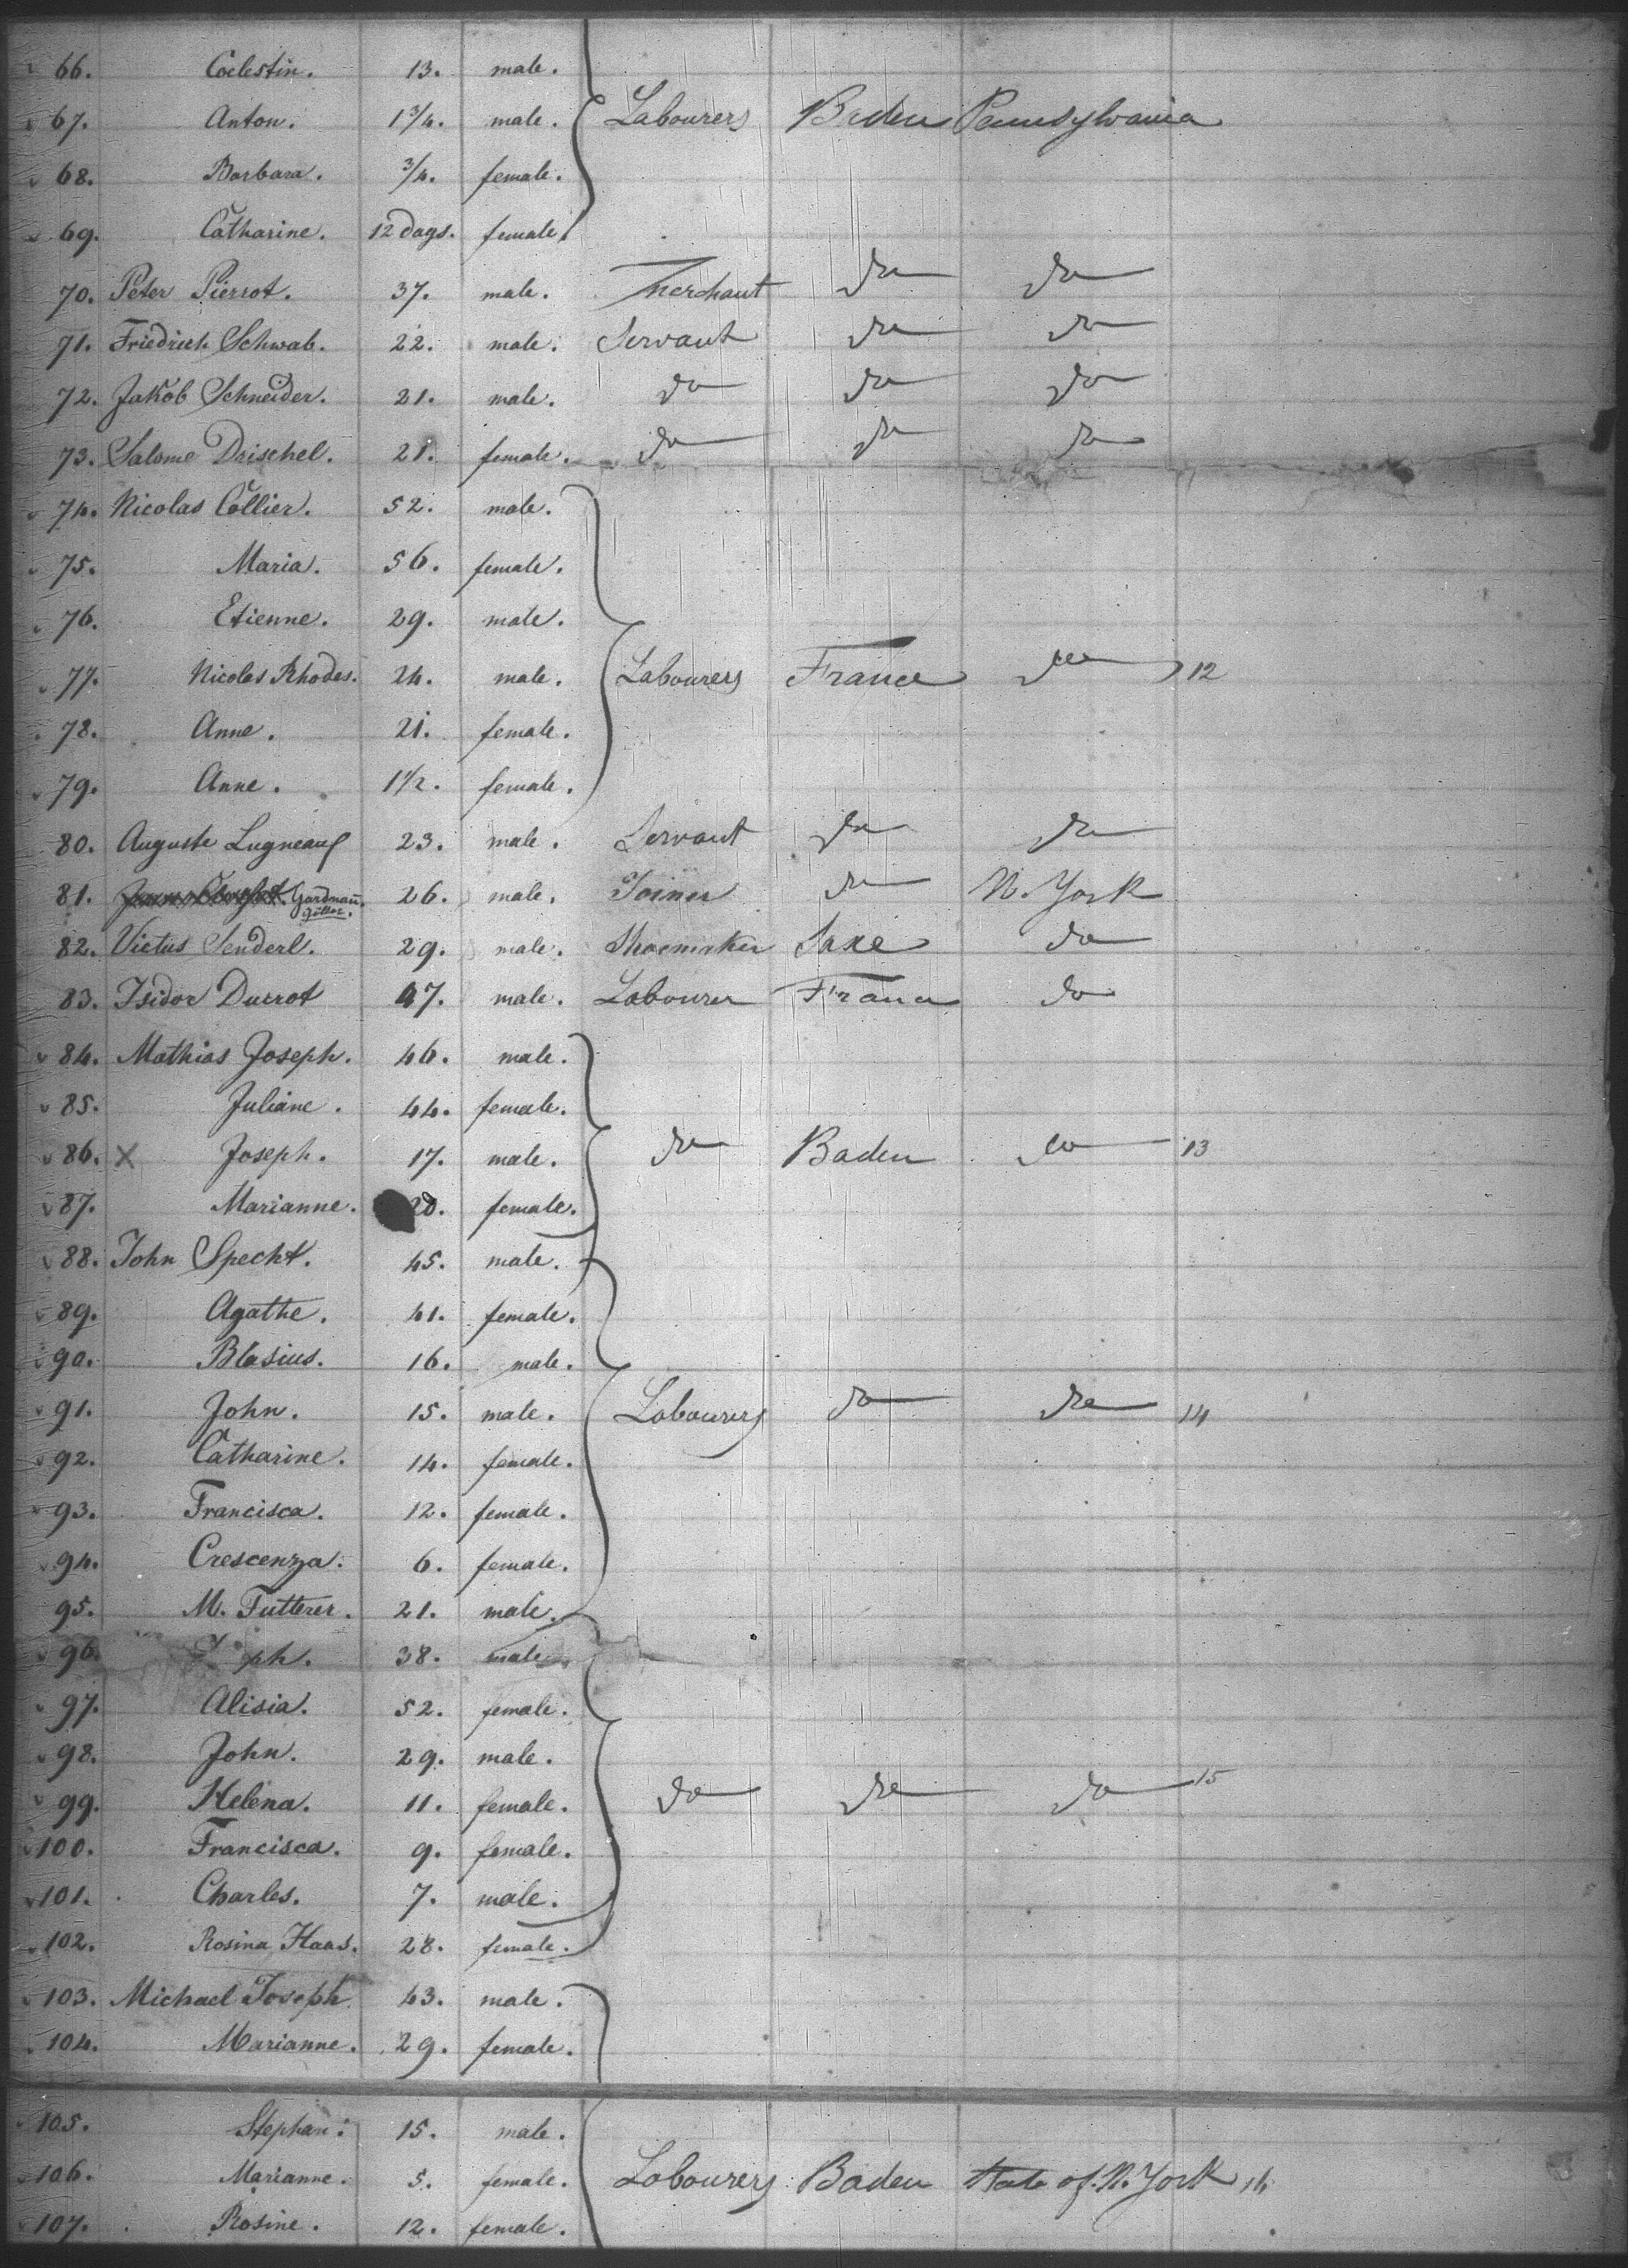 66. Coelestin. 13. male.
67. Anton. 1 3/4. male. Labourers Baden Pennsylvania
68. Barbara. 3/4. female.
69. Catharine. 12 days. female.
70. Peter Pierrot. 37. male. Merchant do do
71. Friedrich Schwab. 22. male. Servant do do
72. Jakob Schneider. 21. male. do do do
73. Salome Drischel. 21. female. do do do
74. Nicolas Collier. 52. male.
75. Maria. 56. female.
76. Etienne. 29. male.
77. Nicolas Rhodes. 24. male. Labourers France do 12
78. Anne. 21. female.
79. Anne. 1 1/2. female.
80. Auguste 23. male. Servant do do
81. 26. male. Joiner do N. York
82. Victus Senderl. 29. male. Shoemaker Saxe do
83. Isidor Ducrot 47. male. Labourer France do
84. Mathias Joseph. 46. male.
85. Juliane. 44. female.
86. X Joseph. 17. male. do Baden do 13
87. Marianne. 20. female.
88. John Specht. 45. male.
89. Agathe. 41. female.
90. Blasius. 16. male.
91. John. 15. male. Labourers do do 14
92. Catharine. 14. female.
93. Francisca. 12. female.
94. Crescenza. 6. female.
95. M. Futterer. 21. male.
96. ph. 38. male.
97. Alisia. 52. female.
98. John. 29. male.
99. Helena. 11. female. do do do 15
100. Francisca. 9. female.
101. Charles. 7. male.
102. Rosina Haas. 28. female.
103. Michael Joseph. 43. male.
104. Marianne. 29. female.
105. Stephan. 15. male.
106. Marianne. 5. female. Labourers Baden State of N. York 16
107. Rosine. 12. female.